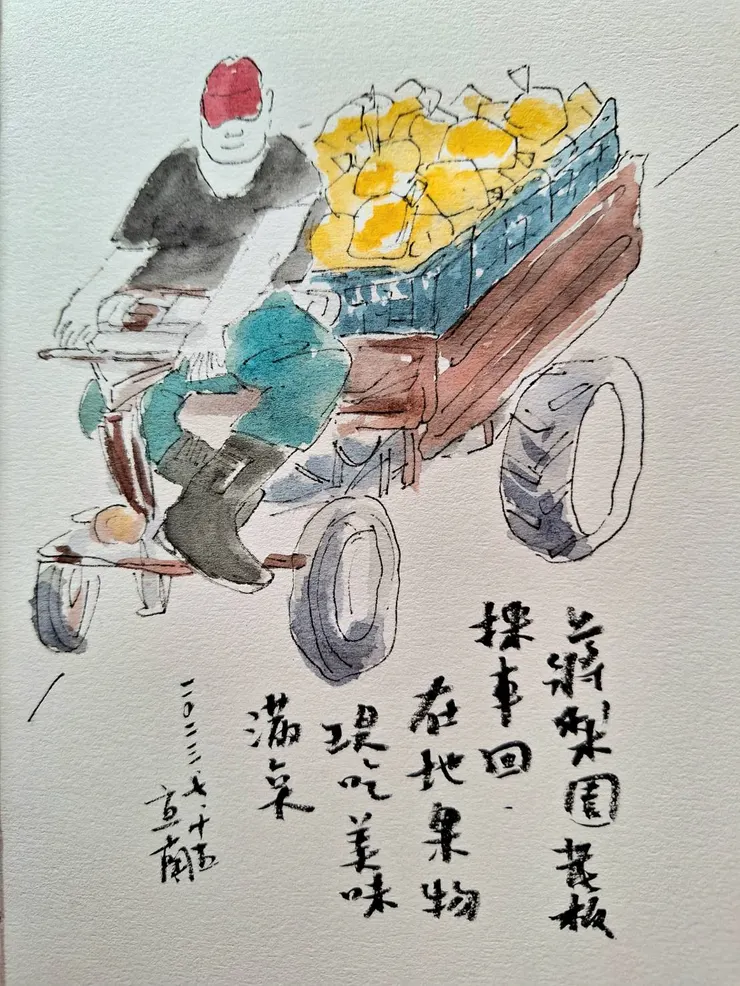 蔣梨園老板
採車回
在地果物
現吃美味
滿
二〇二三.七.十五